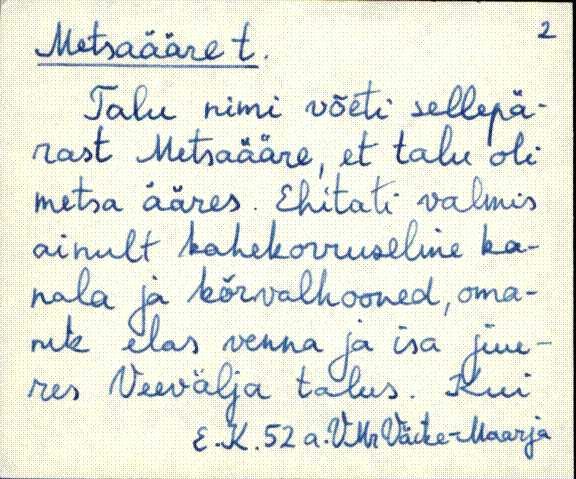 2
Metsaääre t.
Talu nimi võeti sellepä-
rast Metsaääre, et talu oli
metsa ääres. Ehitati valmis
ainult kahekorruseline ka-
nala ja kõrvalhooned, oma-
nik elas venna ja isa juu-
res Veevälja talus. Kui
E.K. 52 a. VMr Väike-Maarja